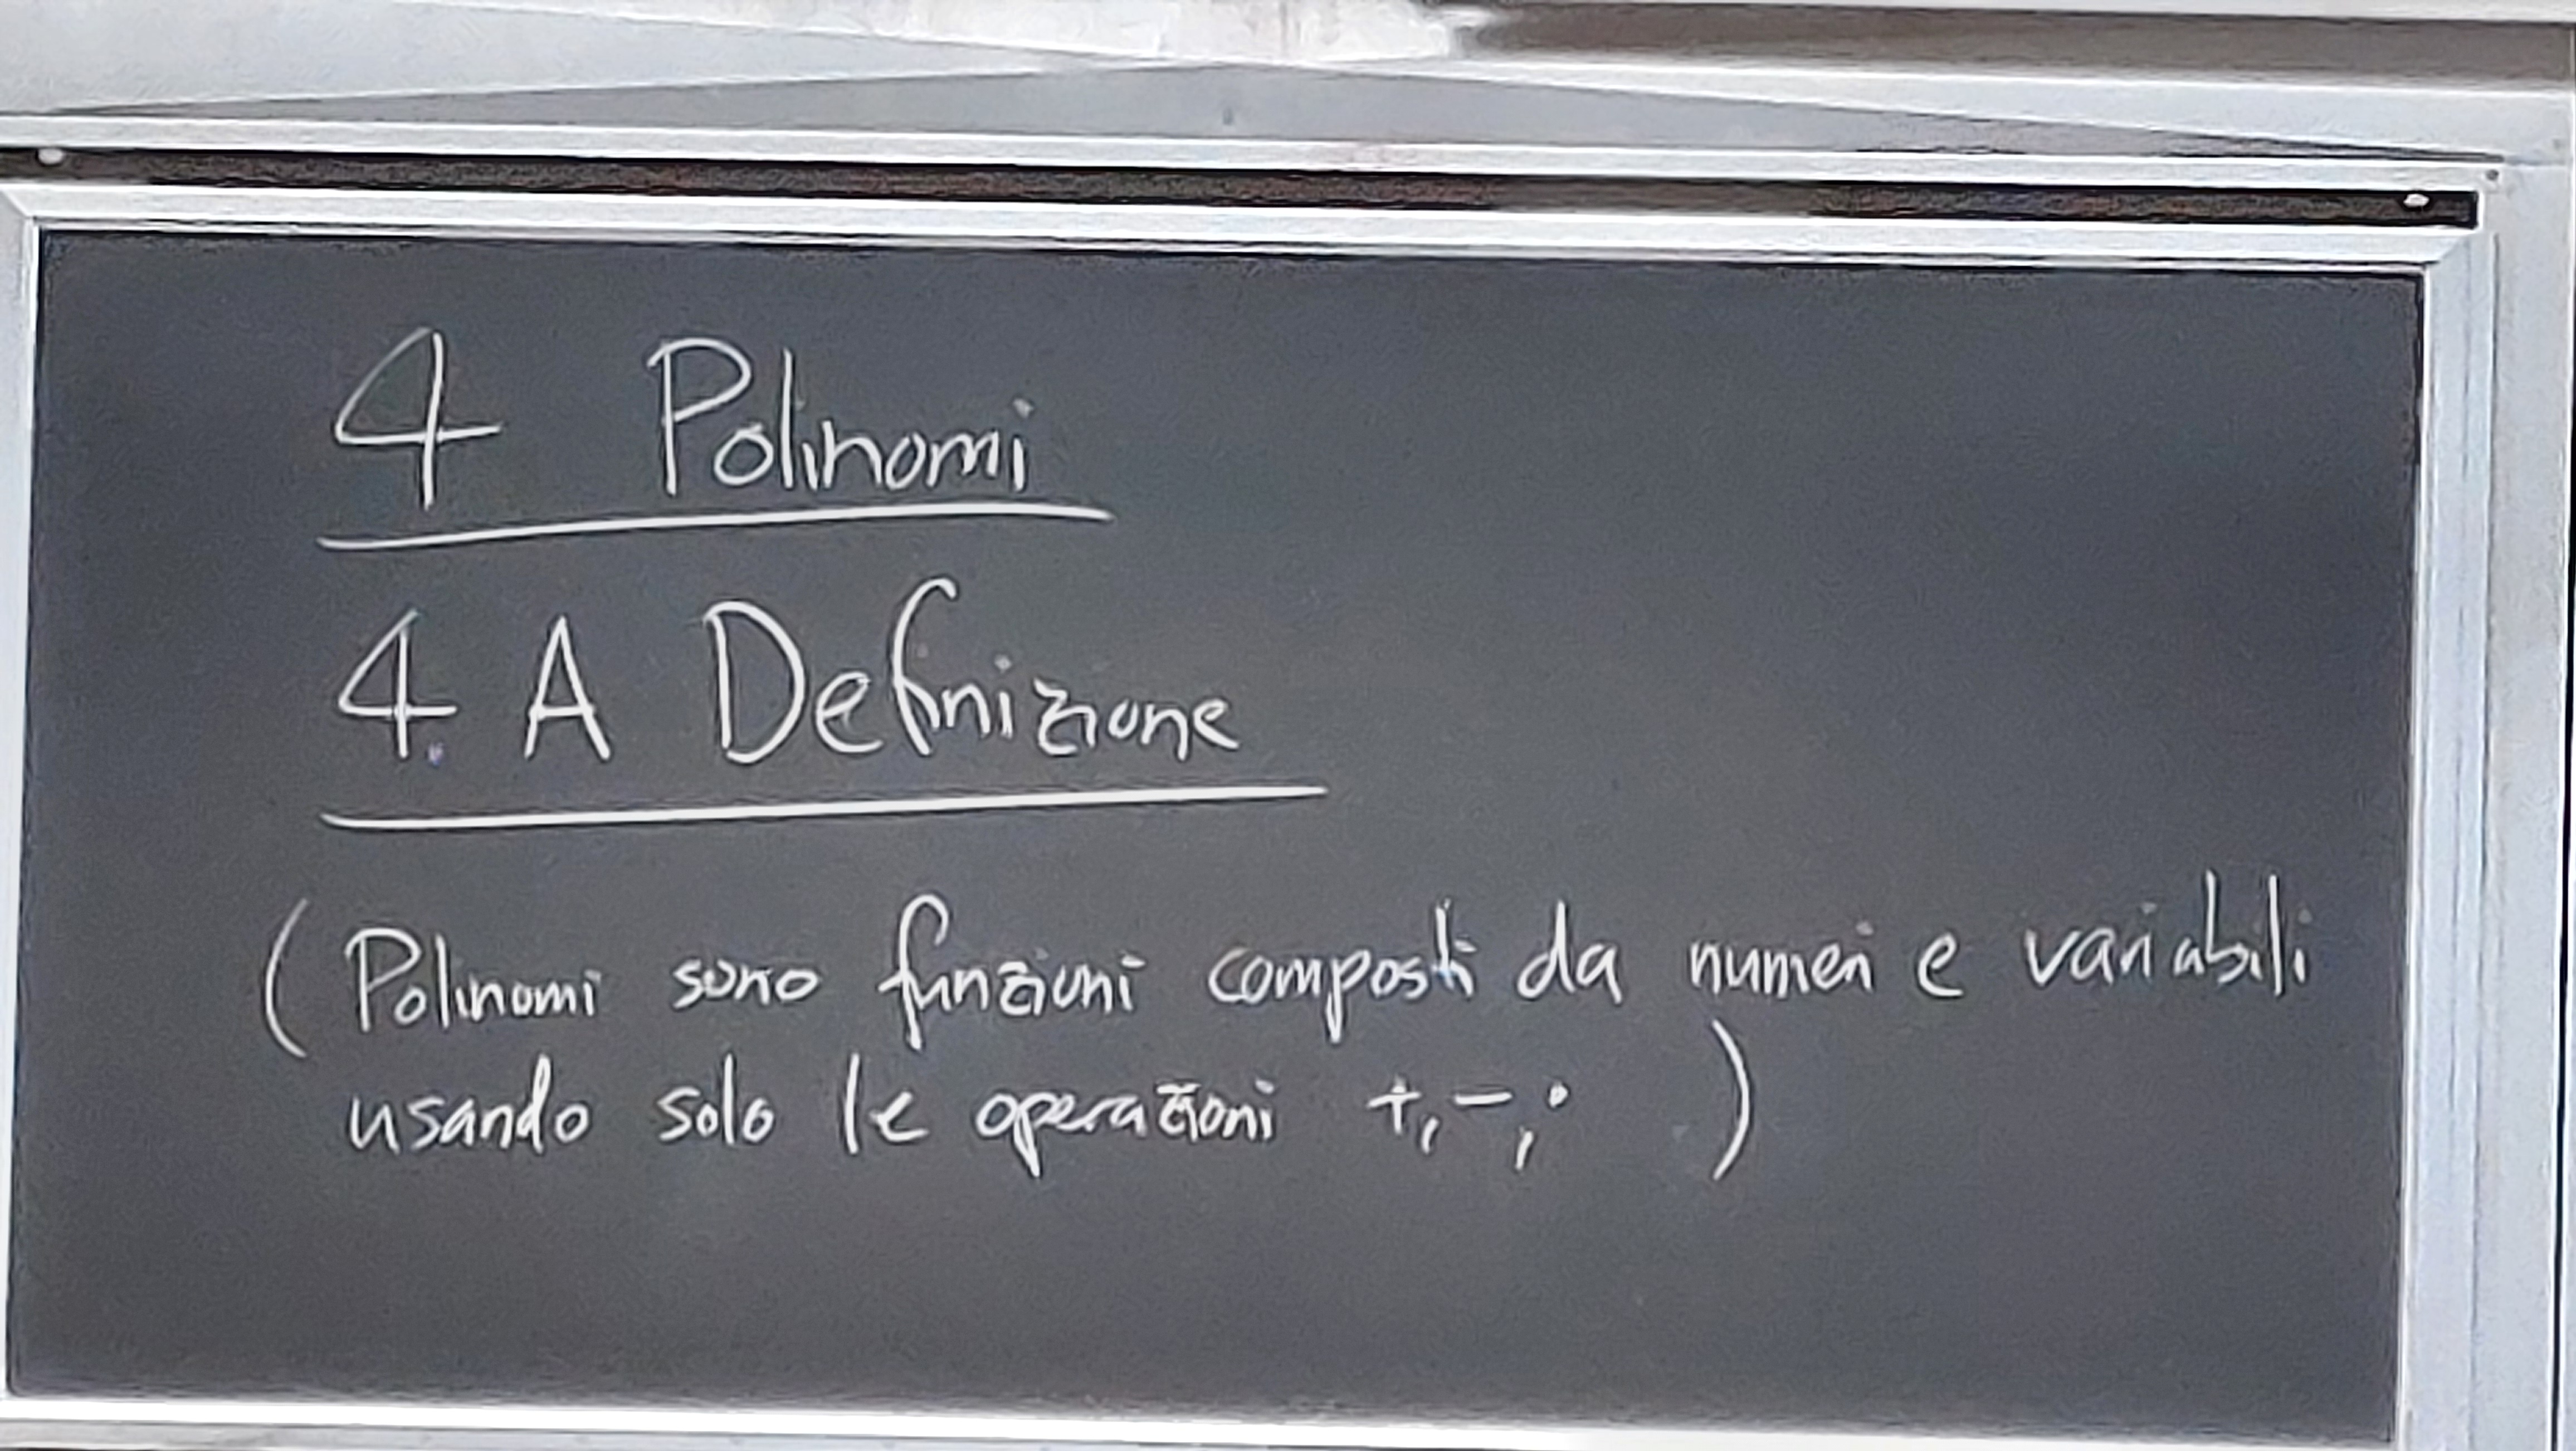 4 Polinomi
4. A Definizione
(Polinomi sono funzioni composti da numeri e variabili
usando solo le operazioni +, -, · )